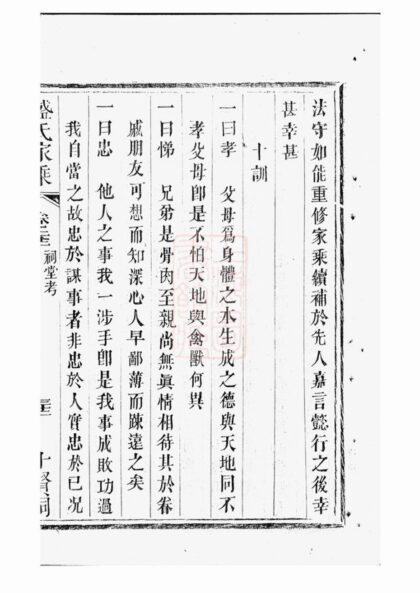 法守如能重修家乘續補於先人嘉言懿行之後幸
甚幸甚
十訓
一曰孝　父母爲身體之本生成之德與天地同不
孝父母卽是不怕天地與禽獸何異
一曰悌　兄弟是骨肉至親尚無眞情相待其於眷
戚朋友可想而知深心人早鄙薄而踈遠之矣
一曰忠　他人之事我一涉手卽是我事成敗功過
我自當之故忠於謀事者非忠於人實忠於已况
盛氏家乘　卷之三　祠堂考